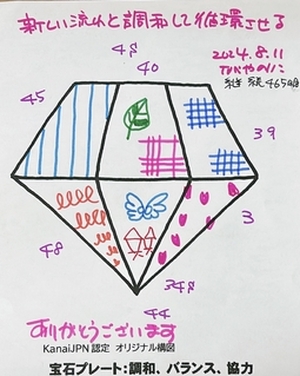 新しい流れと調和して循環させる
48
2024.8.11
40
継続465日目
45
39
3
48
348
44
ありがとうございます
KanaiJPN認定 オリジナル構図
宝石プレート:調和、バランス、協力